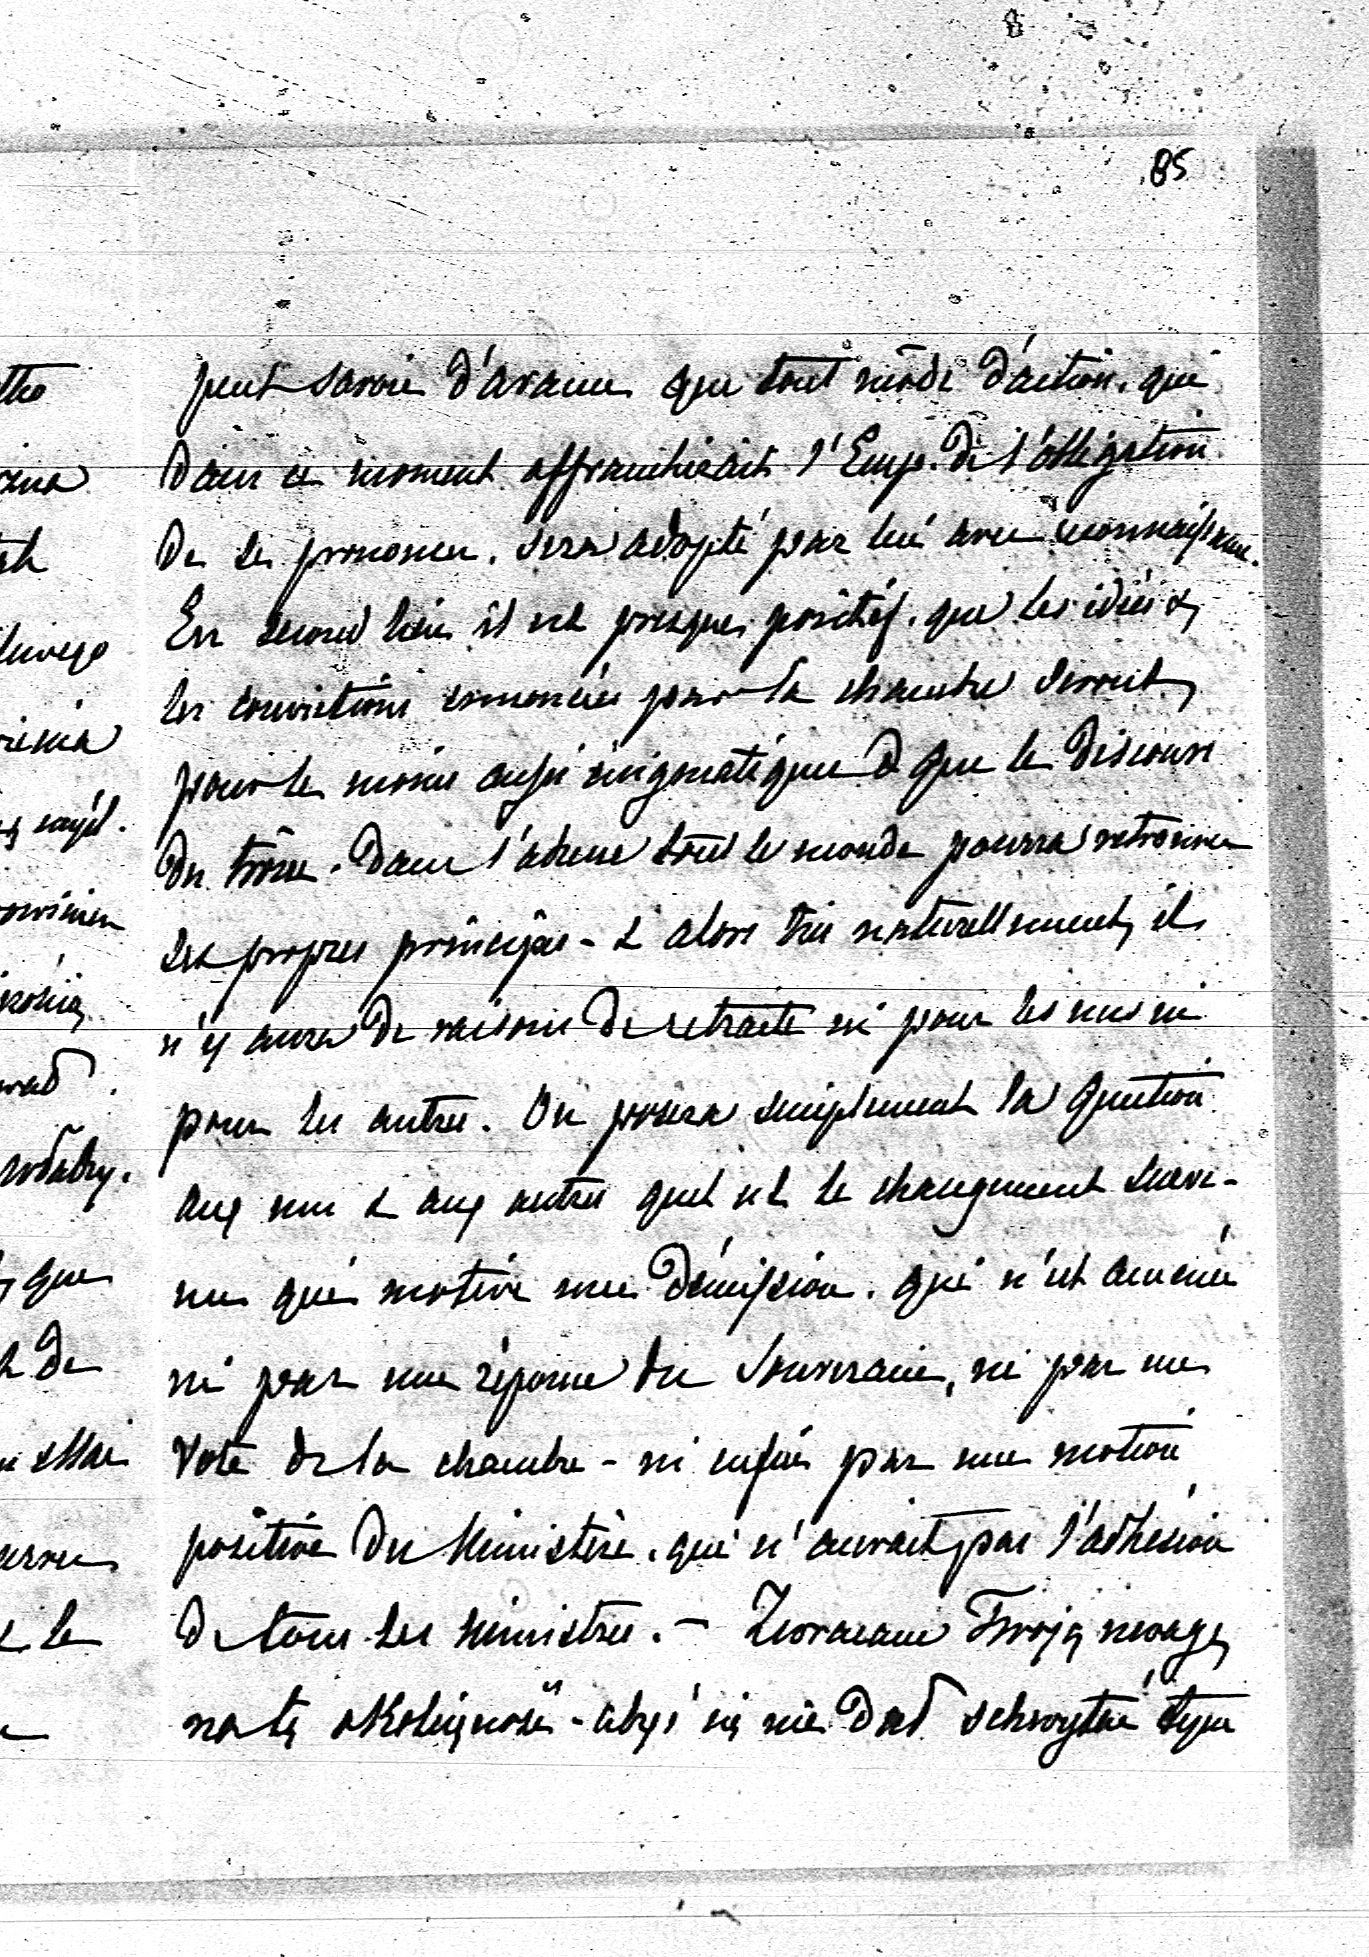 85
peut savoir d'avance que tout mode d'action, qui
dans ce moment affranchirait l'Emp. de l'obligation
de se prononcer, sera adopté par lui avec reconnaissance.
En second lieu il est presque positif, que les idées &
les convictions enoncées par la chambre seront,
pour le moins aussi enigmatiques que le discours
du trône. Dans l'adresse tout le monde pourra retrouver
ses propres principes - & alors très naturellement, il
n'y aura de raisons de retraite ni pour les uns ni
pour les autres. On posera simplement la question
aux uns & aux autres quel est le changement surve-
nu qui motive une démission, qui n'est amenée
ni par une réponse du Souverain, ni par un
vote de la chambre - ni enfin par une motion
positive du Ministère, qui n'aurait pas l'adhésion
de tous les ministres. - Zwracam Twoją uwagę
na tę okoliczność - abyś się nie dał schwytać tym